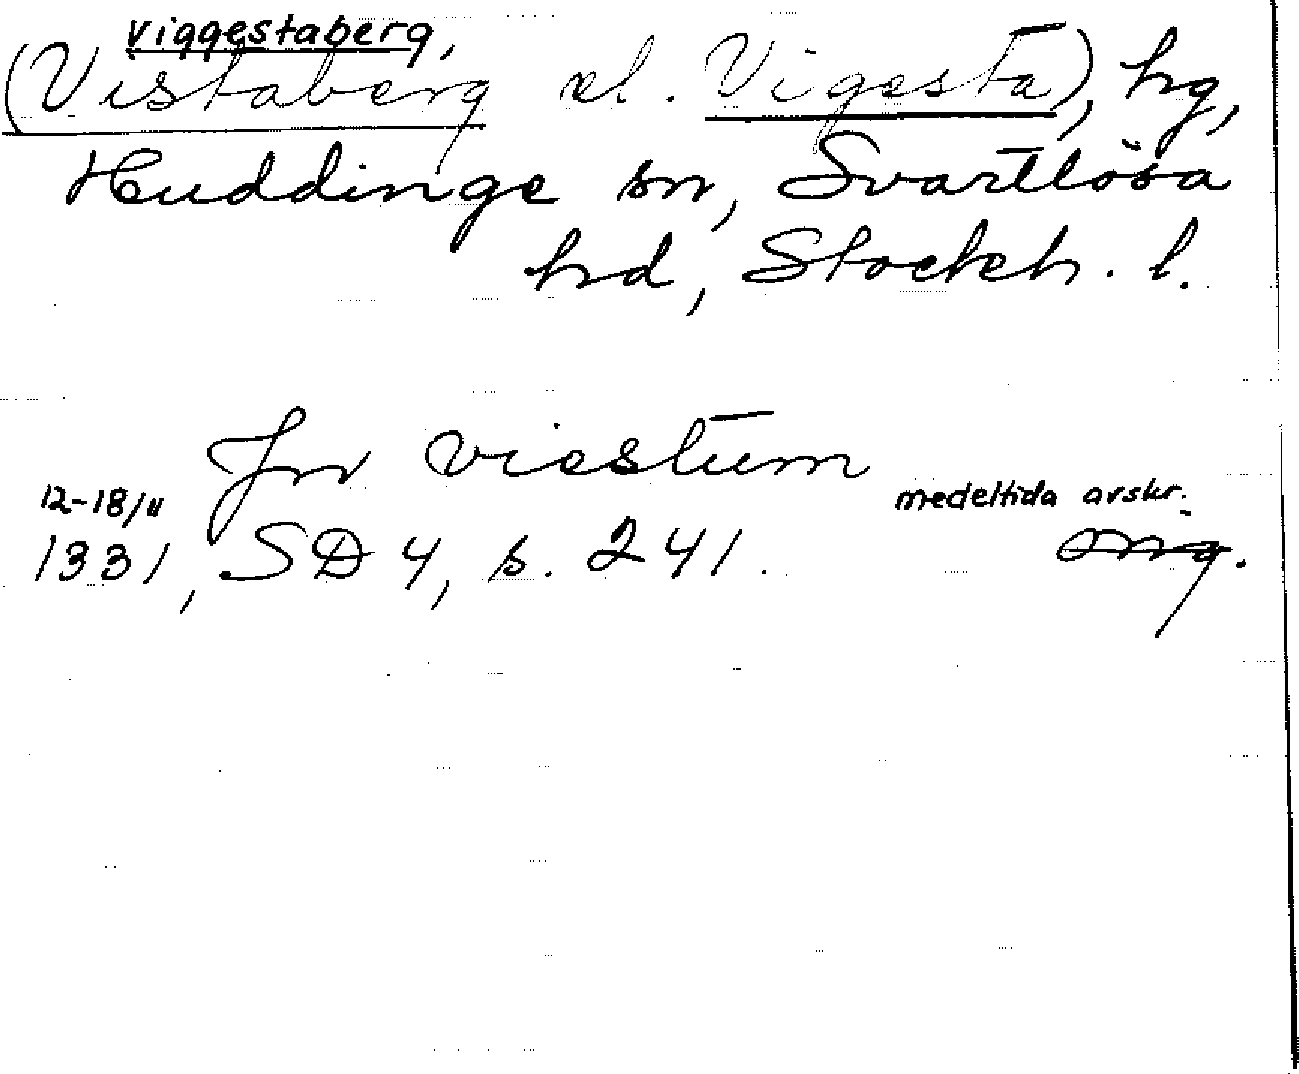 Viggestaberg,
(Vistaberg el. Vigesta), hg,
Huddinge sn, Svartlösa
hd, Stockh. l.
Jn viestum
12-18/11 medeltida avskr.
1331, SD 4, s. 241. orig.